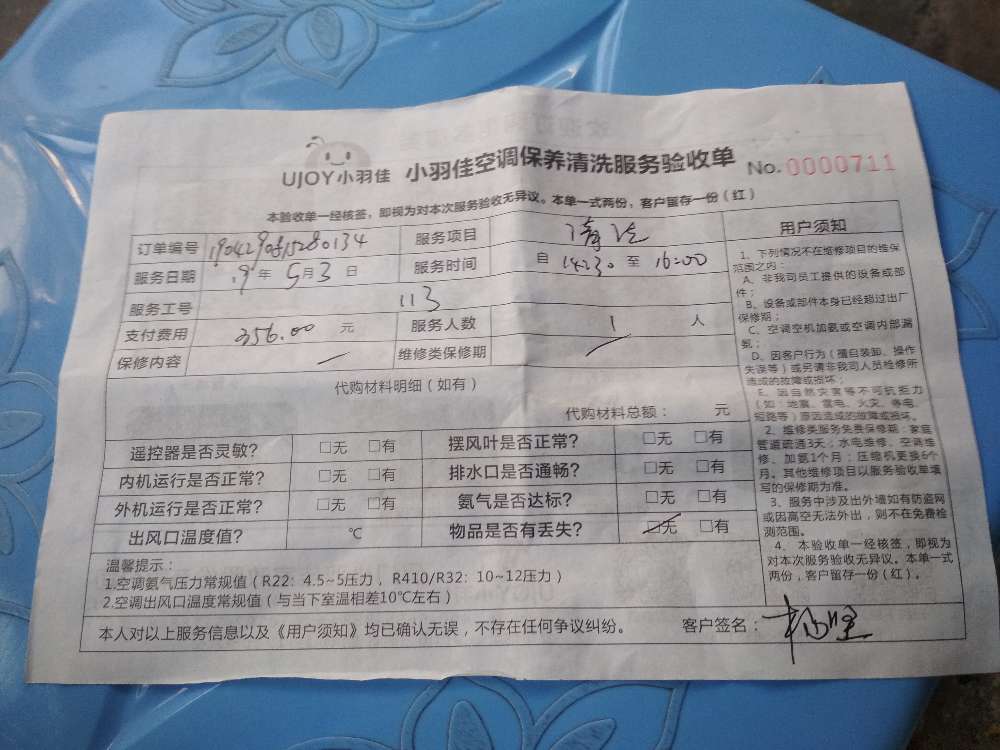 UJOY小羽佳 小羽佳空调保养清洗服务验收单 No.0000711
本验收单一经核签，即视为对本次服务验收无异议。本单一式两份，客户留存一份（红）
订单编号 1904290815280134 服务项目 清洗
服务日期 19年5月3日 服务时间 自 14:30 至 16:00
服务工号 113
支付费用 356.00 元 服务人数 1 人
保修内容 / 维修类保修期 /
代购材料明细（如有）
代购材料总额： 元
遥控器是否灵敏？ □无 □有 摆风叶是否正常？ □无 □有
内机运行是否正常？ □无 □有 排水口是否通畅？ □无 □有
外机运行是否正常？ □无 □有 氨气是否达标？ □无 □有
出风口温度值？ ℃ 物品是否有丢失？ □无 □有
温馨提示：
1.空调氨气压力常规值（R22：4.5~5压力，R410/R32：10~12压力）
2.空调出风口温度常规值（与当下室温相差10℃左右）
本人对以上服务信息以及《用户须知》均已确认无误，不存在任何争议纠纷。 客户签名：
用户须知
1、下列情况不在维修项目的维保
范围之内：
A、非我司员工提供的设备或部
件；
B、设备或部件本身已经超过出厂
保修期；
C、空调空机加氨或空调内部漏
氨；
D、因客户行为（擅自装卸、操作
失误等）或另请非我司人员检修所
造成的故障或损坏；
E、因自然灾害等不可抗拒力
（如：地震、雷电、火灾、停电、
短路等）原因造成的故障或损坏。
2、维修类服务免费保修期：家庭
管道疏通3天；水电维修、空调维
修、加氨1个月；压缩机更换6个
月。其他维修项目以服务验收单填
写的保修期为准。
3、服务中涉及出外墙如有防盗网
或因高空无法外出，则不在免费检
测范围。
4、本验收单一经核签，即视为
对本次服务验收无异议。本单一式
两份，客户留存一份（红）。